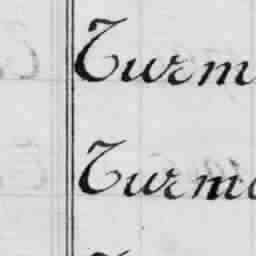 Turm
Turme